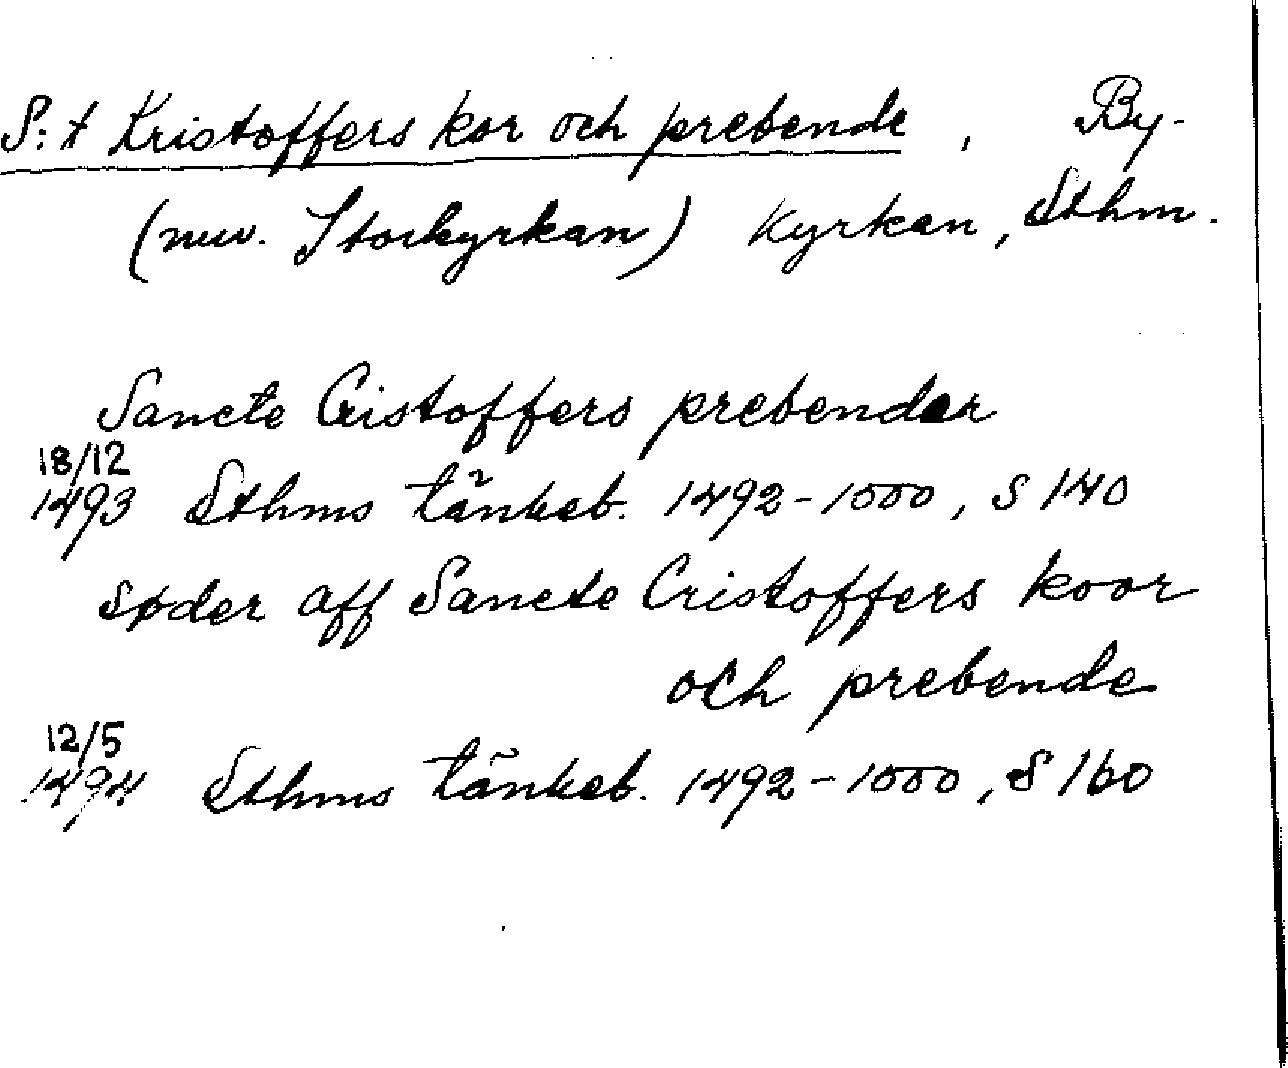 S:t Kristoffers kor och prebende, By-
(nuv. Storkyrkan) Kyrkan, Sthm.
Sancte Cristoffers prebender
18/12
1493 Sthms tänkeb. 1492-1500, S 140
søder aff Sancte Cristoffers koor
och prebende
12/5
1494 Sthms tänkeb. 1492-1500, S 160